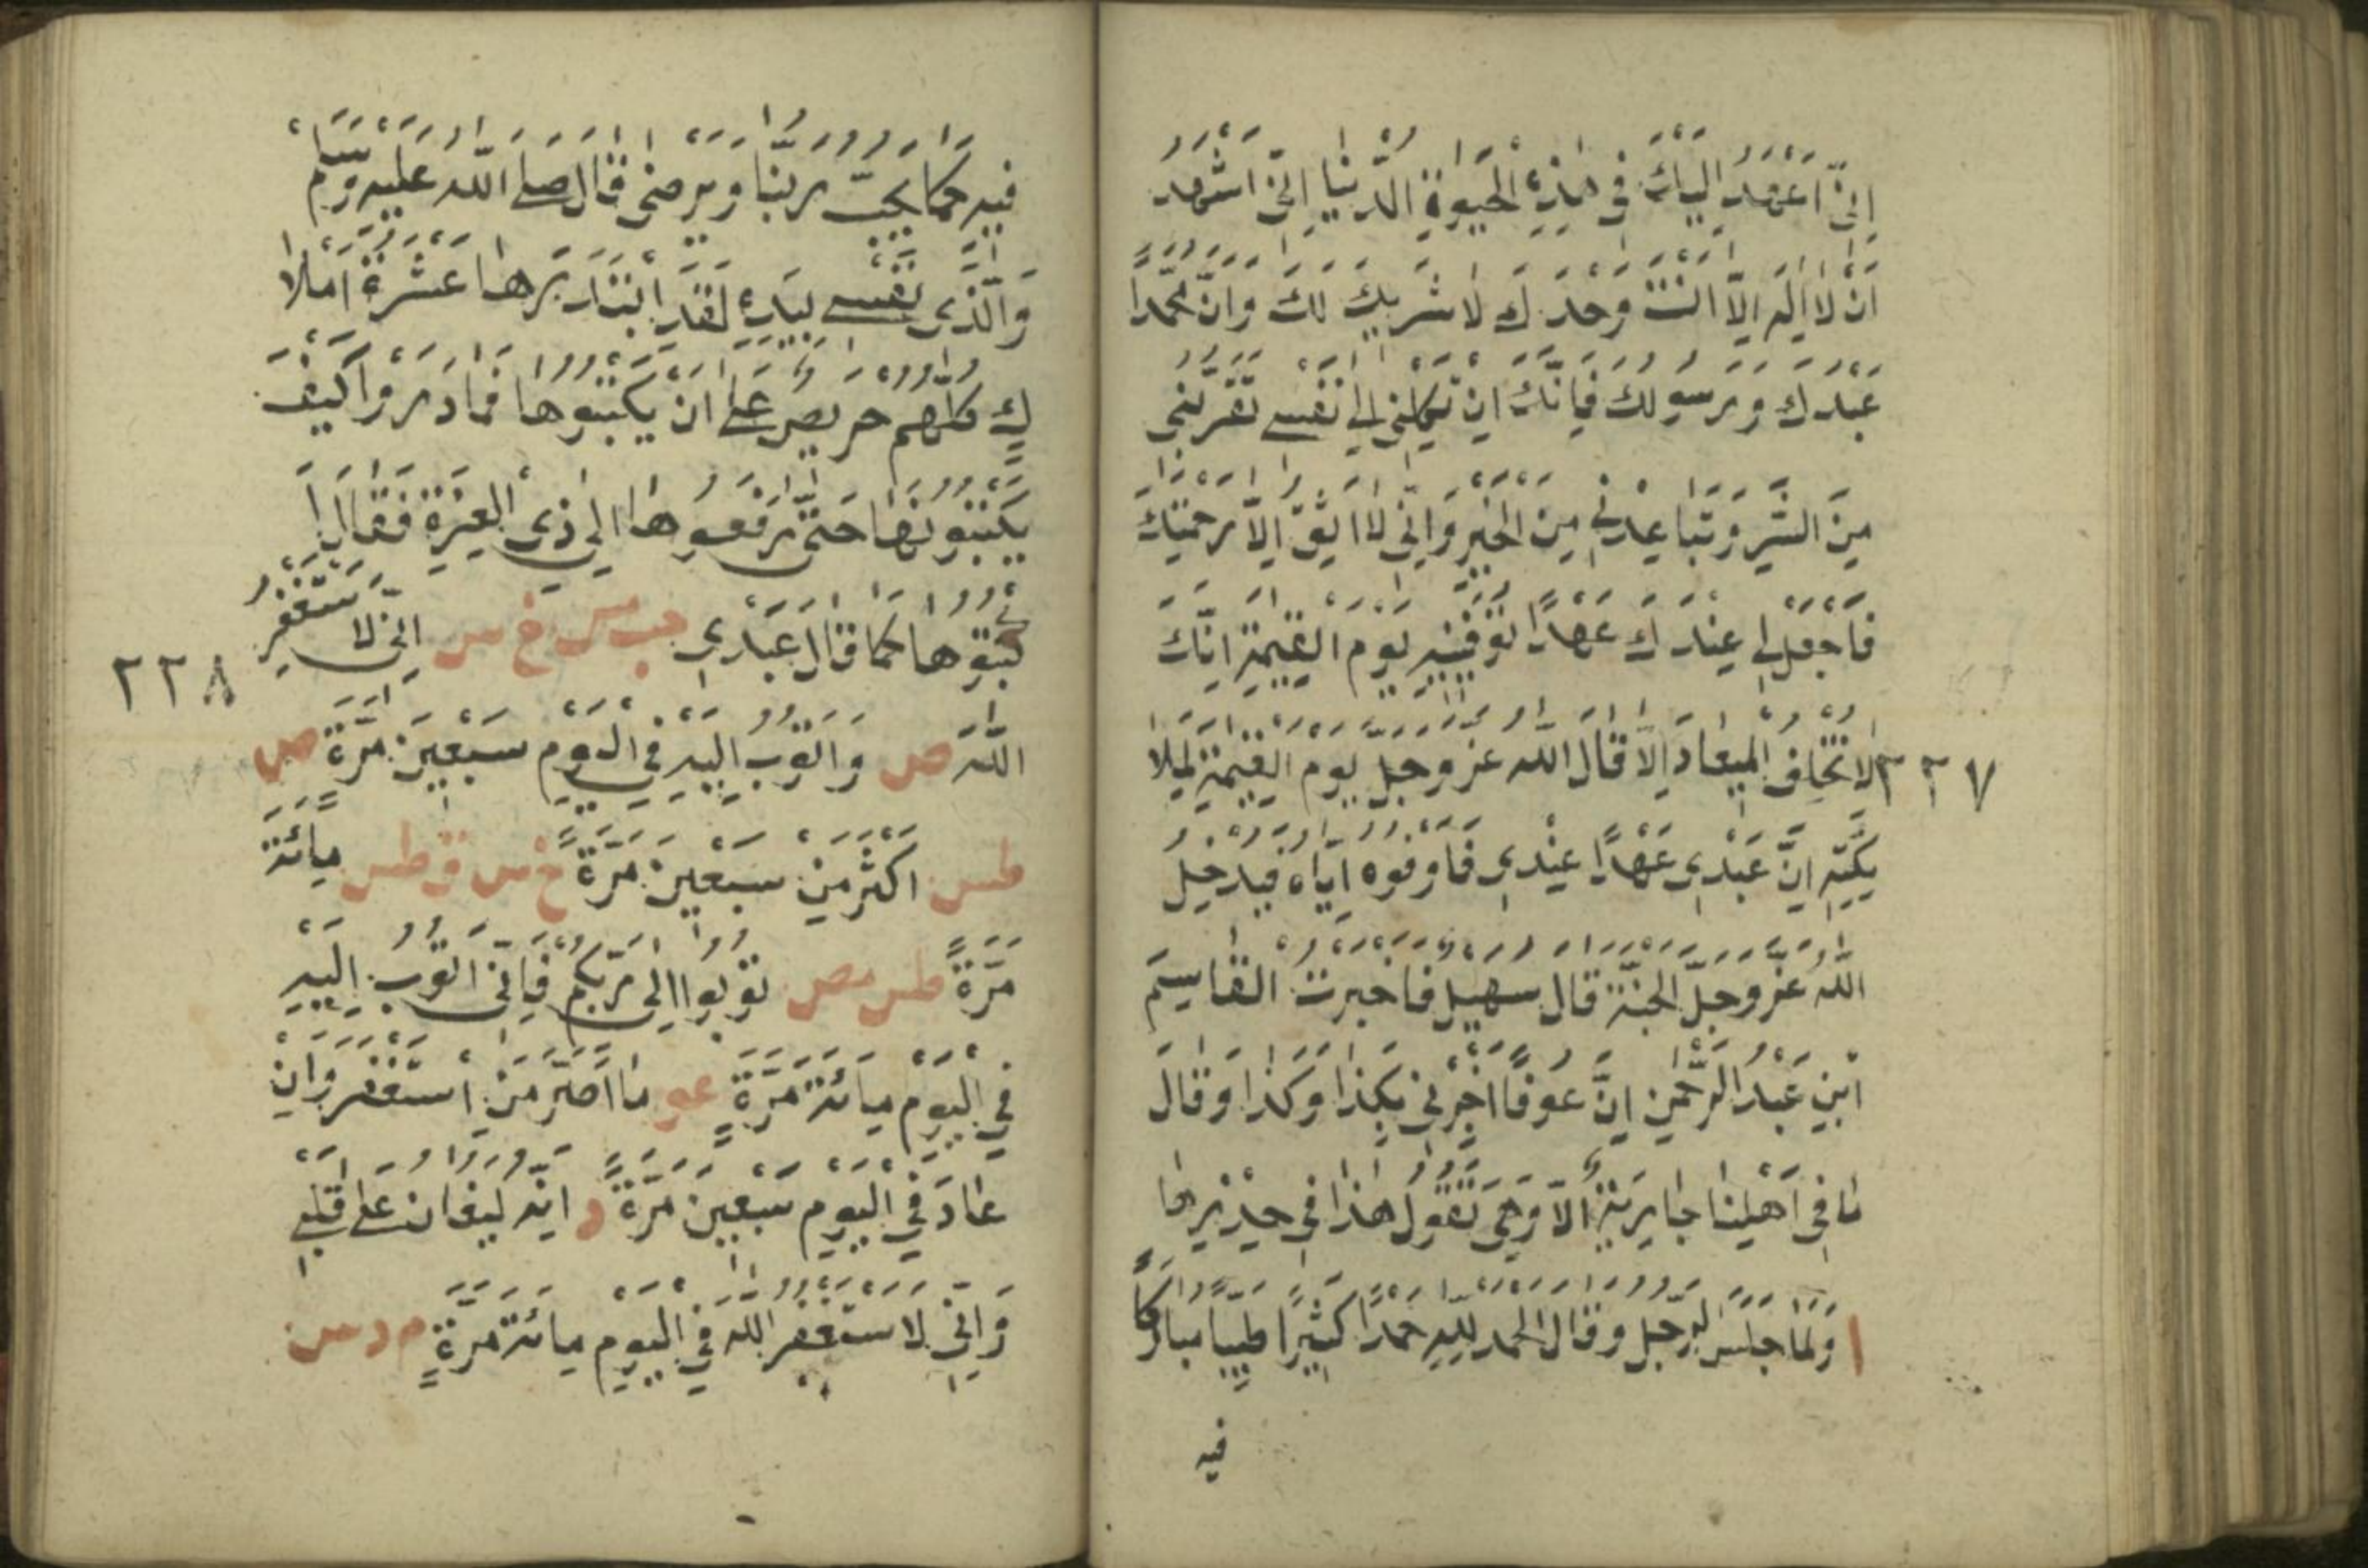 اِنِّى اَعْهَدُ اِلَيْكَ فِى هٰذِهِ الْحَيٰوةِ الدُّنْيَا اِنِّى اَشْهَدُ
اَنْ لَا اِلٰهَ اِلَّا اَنْتَ وَحْدَكَ لَا شَرِيكَ لَكَ وَاَنَّ مُحَمَّدًا
عَبْدُكَ وَرَسُولُكَ فَاِنَّكَ اِنْ تَكِلْنِى اِلٰى نَفْسِى تُقَرِّبْنِى
مِنَ الشَّرِّ وَتُبَاعِدْنِى مِنَ الْخَيْرِ وَاِنِّى لَا اَثِقُ اِلَّا بِرَحْمَتِكَ
فَاجْعَلْ لِى عِنْدَكَ عَهْدًا تُوَفِّينِيهِ يَوْمَ الْقِيٰمَةِ اِنَّكَ
٢٢٧ لَا تُخْلِفُ الْمِيعَادَ اِلَّا قَالَ اللّٰهُ عَزَّ وَجَلَّ يَوْمَ الْقِيٰمَةِ لِمَلَا
ئِكَتِهِ اِنَّ عَبْدِى عَهْدًا عِنْدِى فَاَوْفُوهُ اِيَّاهُ فَيُدْخِلُ
اللّٰهُ عَزَّ وَجَلَّ الْجَنَّةَ قَالَ سُهَيْلٌ فَاَخْبَرْتُ الْقَاسِمَ
ابْنِ عَبْدِ الرَّحْمٰنِ اِنَّ عَوْفًا اَخْبَرَنِى بِكَذَا وَكَذَا وَقَالَ
مَا فِى اَهْلِنَا جَارِيَةٌ اِلَّا وَهِىَ تَقُولُ هٰذَا فِى خِدْرِهَا
ا وَلَمَّا جَلَسَ الرَّجُلُ وَقَالَ الْحَمْدُ لِلّٰهِ حَمْدًا كَثِيرًا طَيِّبًا مُبَارَكًا
فيه
فِيهِ كَمَا يُحِبُّ رَبُّنَا وَيَرْضٰى قَالَ صَلَّى اللّٰهُ عَلَيْهِ وَسَلَّمْ
وَالَّذِى نَفْسِى بِيَدِهِ لَقَدِ ابْتَدَرَهَا عَشَرَةُ اَمْلَا
كٍ كُلُّهُمْ حَرِيصٌ عَلٰى اَنْ يَكْتُبُوهَا فَمَا دَرَوْا كَيْفَ
يَكْتُبُونَهَا حَتّٰى رَفَعُوهَا اِلٰى ذِى الْعِزَّةِ فَقَالَ اُ
كْتُبُوهَا كَمَا قَالَ عَبْدِى حب مس خ س اِنِّى لَاَسْتَغْفِرُ
٢٢٨
اللّٰهَ ص وَاَتُوبُ اِلَيْهِ فِى الْيَوْمِ سَبْعِينَ مَرَّةً ص
طس اَكْثَرَ مِنْ سَبْعِينَ مَرَّةً خ س ق طس مِائَةَ
مَرَّةٍ طس مص تُوبُوا اِلٰى رَبِّكُمْ فَاِنِّى اَتُوبُ اِلَيْهِ
فِى الْيَوْمِ مِائَةَ مَرَّةٍ عو مَا اَصَرَّ مَنِ اسْتَغْفَرَ وَاِنْ
عَادَ فِى الْيَوْمِ سَبْعِينَ مَرَّةً د اِنَّهُ لَيُغَانُ عَلٰى قَلْبِى
وَاِنِّى لَاَسْتَغْفِرُ اللّٰهَ فِى الْيَوْمِ مِائَةَ مَرَّةٍ م د س